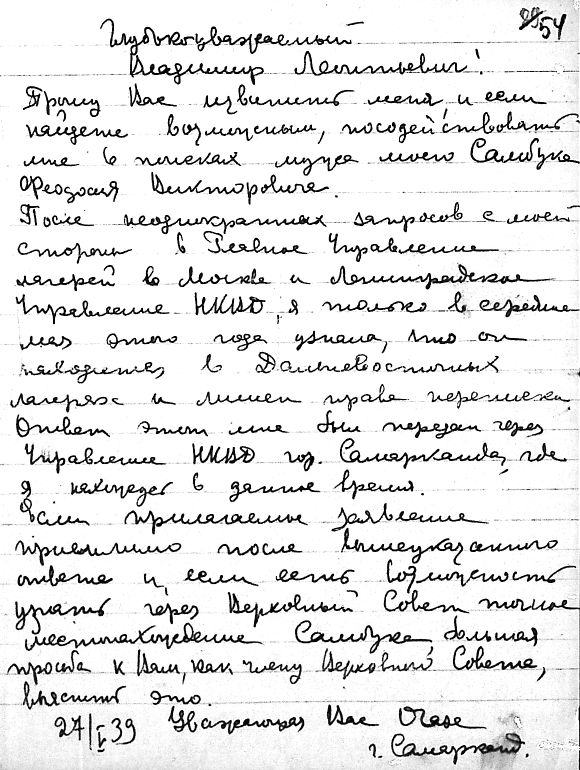 54
Глубокоуважаемый
Владимир Леонтьевич!
Прошу Вас извинить меня и если
найдете возможным, посодействовать
мне в поисках мужа моего Самбука
Феодосия Викторовича.
После неоднократных запросов с моей
стороны в Главное Управление
лагерей в Москве и Ленинградское
Управление НКВД, я только в середине
мая этого года узнала, что он
находится в Дальневосточных
лагерях и лишен права переписки
Ответ этот мне был передан через
Управление НКВД гор. Самарканда, где
я нахожусь в данное время.
Если прилагаемое заявление
приемлимо после вышеуказанного
ответа и если есть возможность
узнать через Верховный Совет точное
местонахождение Самбука, большая
просьба к Вам, как члену Верховного Совета,
выяснить это.
27/ 39 Уважающая Вас
г. Самарканд.